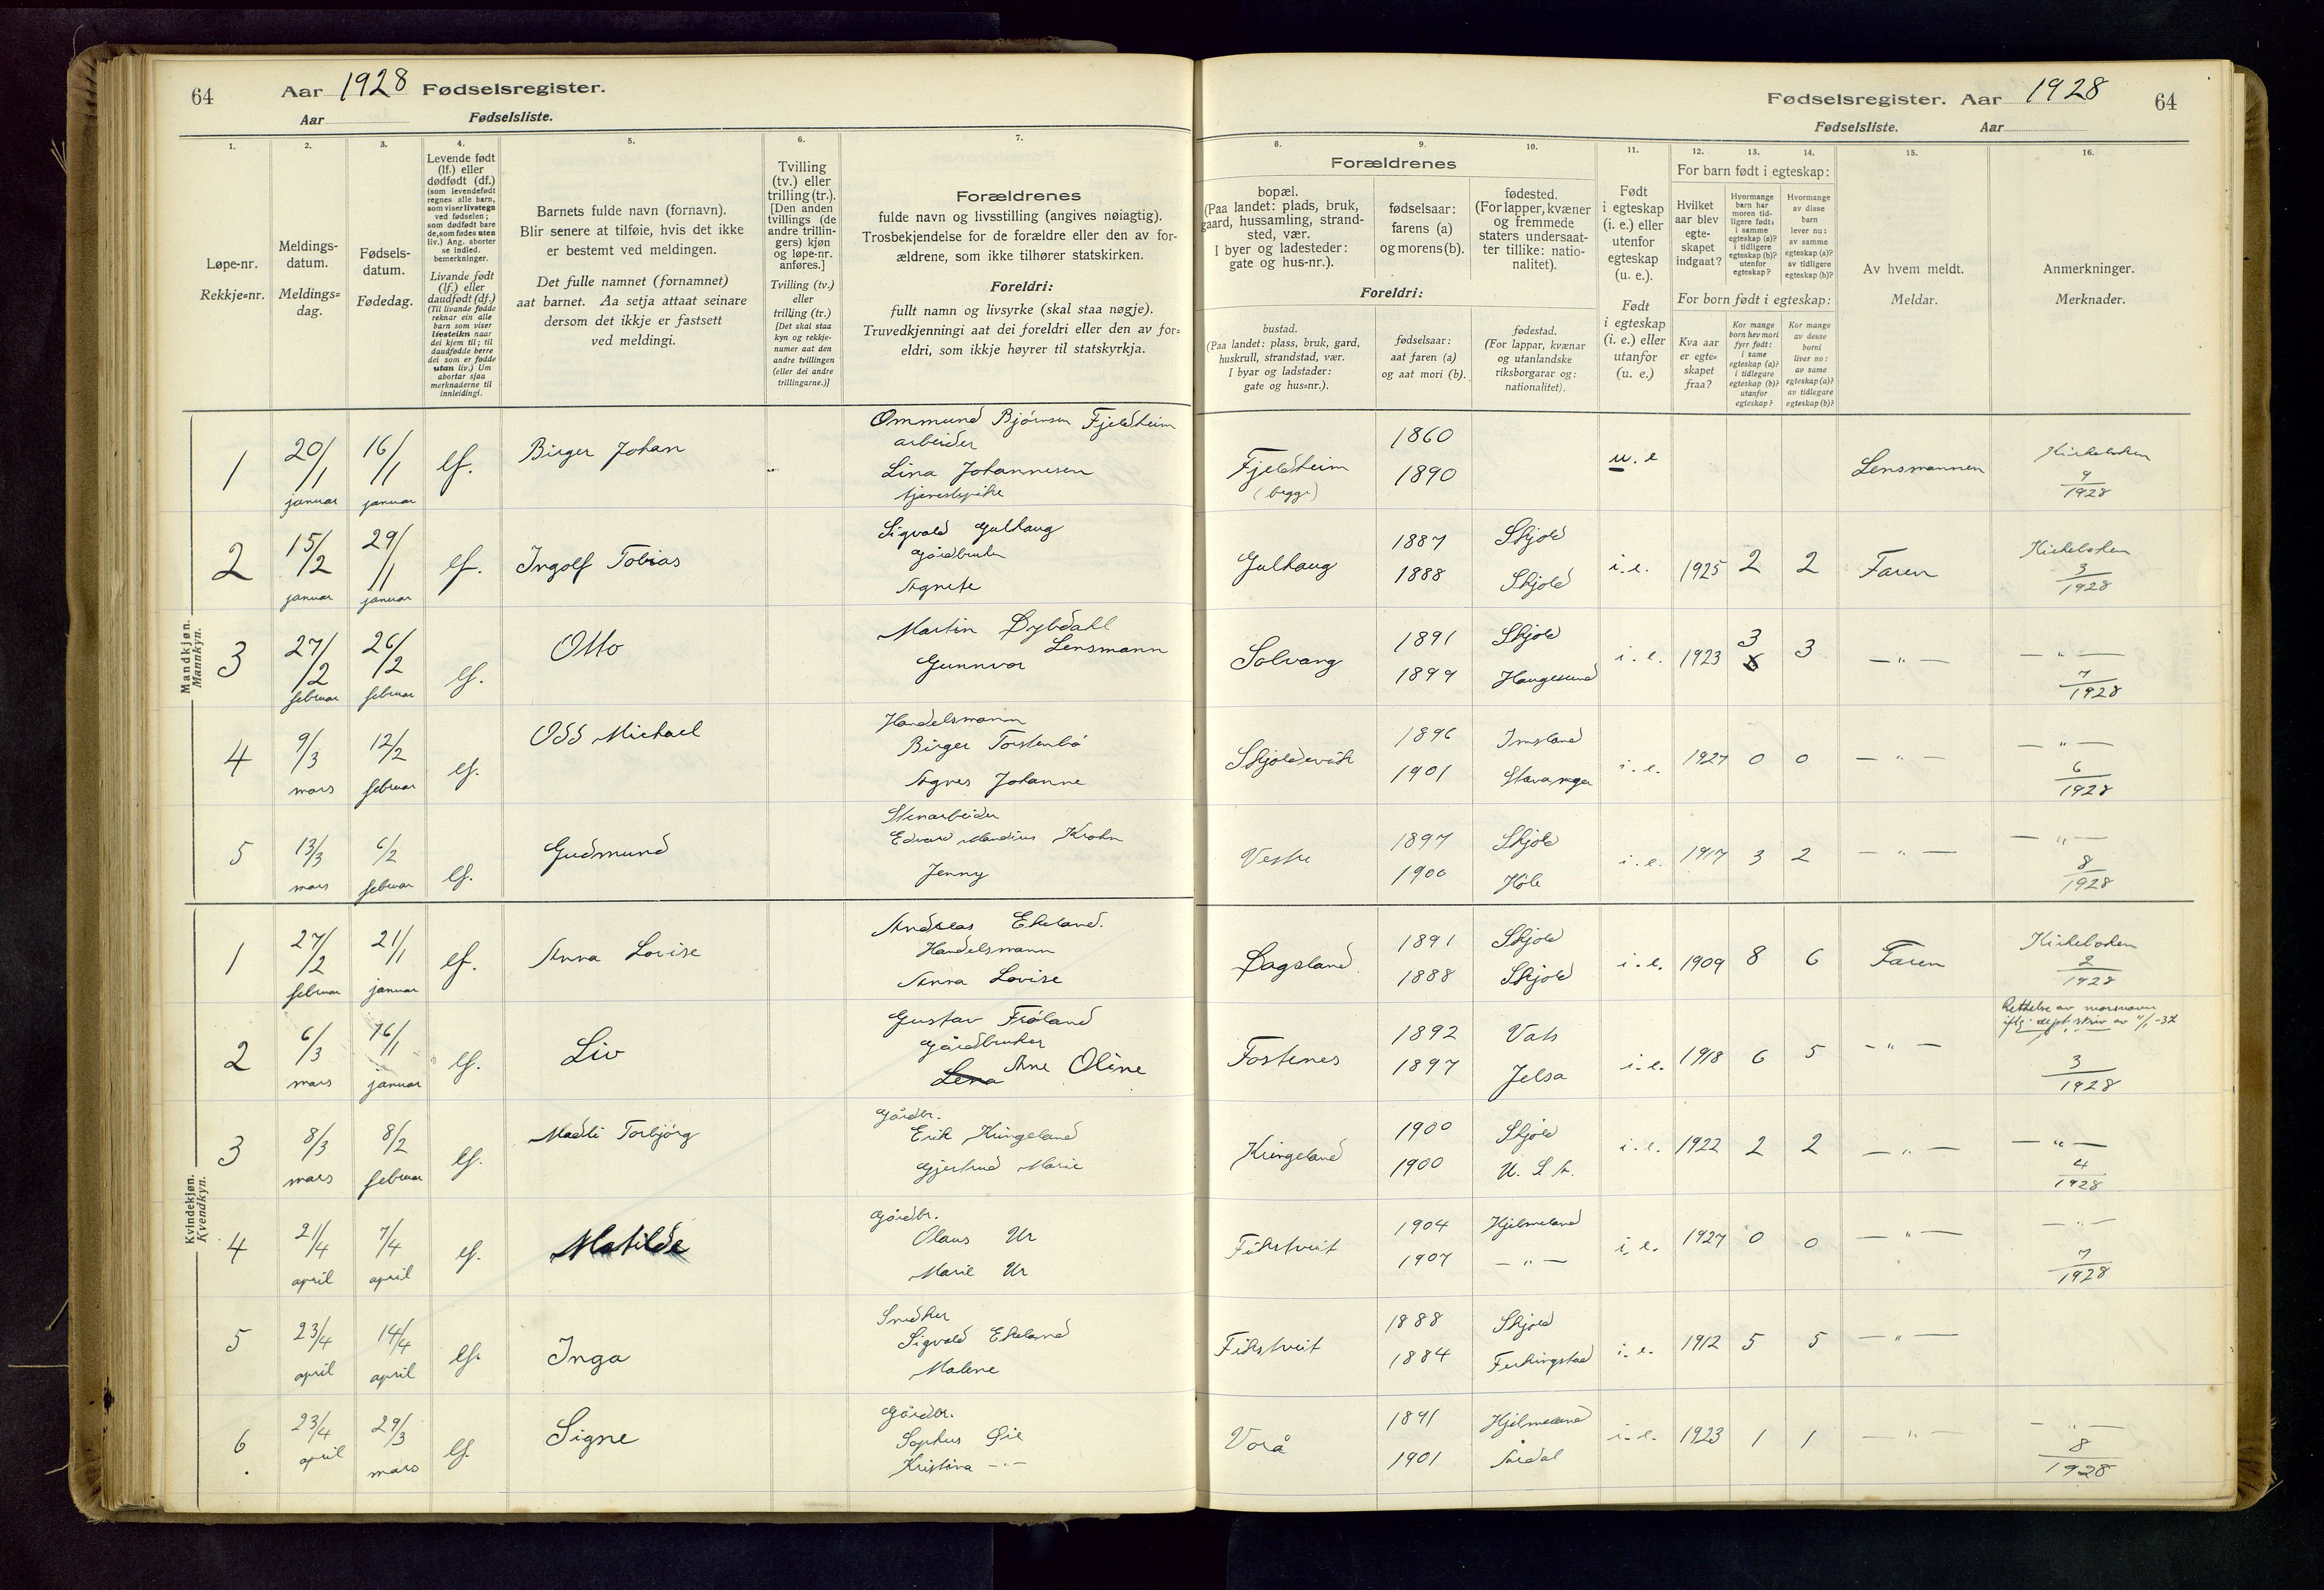 64 Aar 1928 Fødselsregister.
Aar Fødselsliste.
Fødselsregister. Aar 1928 64
Fødselsliste. Aar
1. 2. 3. 4. 5. 6. 7.
Løpe-nr.
Rekkje=nr.
Meldings-
datum.
Meldings=
dag.
Fødsels-
datum.
Fødedag.
Levende født
(lf.) eller
dødfødt (df.)
(som levendefødt
regnes alle barn,
som viser livstegn
ved fødselen;
som dødfødt bare
de, som fødes uten
liv.) Ang. aborter
se indled.
bemerkninger.
Livande født
(lf.) eller
daudfødt (df.)
(Til livande fødde
reknar ein alle
barn som viser
livsteikn naar
dei kjem til; til
daudfødde berre
dei som er fødde
utan liv.) Um
abortar sjaa
merknaderne til
innleidingi.
Barnets fulde navn (fornavn).
Blir senere at tilføie, hvis det ikke
er bestemt ved meldingen.
Det fulle namnet (fornamnet)
aat barnet. Aa setja attaat seinare
dersom det ikkje er fastsett
ved meldingi.
Tvilling
(tv.) eller
trilling (tr.).
[Den anden
tvillings (de
andre trillin-
gers) kjøn
og løpe-nr.
anføres.]
Tvilling (tv.)
eller
trilling (tr.)
[Det skal staa
kyn og rekkje-
numer aat den
andre tvillingen
(eller dei andre
trillingarne.)]
Forældrenes
fulde navn og livsstilling (angives nøiagtig).
Trosbekjendelse for de forældre eller den av for-
ældrene, som ikke tilhører statskirken.
Foreldri:
fullt namn og livsyrke (skal staa nøgje).
Truvedkjenningi aat dei foreldri eller den av for=
eldri, som ikkje høyrer til statskyrkja.
8. 9. 10. 11. 12. 13. 14. 15. 16.
Forældrenes
bopæl.
(Paa landet: plads, bruk,
gaard, hussamling, strand-
sted, vær.
I byer og ladesteder:
gate og hus-nr.).
fødselsaar:
farens (a)
og morens (b).
fødested.
(For lapper, kvæner
og fremmede
staters undersaat-
ter tillike: natio-
nalitet).
Foreldri:
bustad.
(Paa landet: plass, bruk, gard,
huskrull, strandstad, vær.
I byar og ladstader:
gate og hus=nr.).
fødselsaar:
aat faren (a)
og aat mori (b).
fødestad.
(For lappar, kvænar
og utanlandske
riksborgarar og:
nationalitet).
Født
i egteskap
(i. e.) eller
utenfor
egteskap
(u. e.).
Født
i egteskap
(i. e.) eller
utanfor
(u. e.)
For barn født i egteskap:
Hvilket
aar blev
egte-
skapet
indgaat?
Hvormange
barn har
moren tid-
ligere født:
i samme
egteskap (a)?
i tidligere
egteskap (b)?
utenfor
egteskap?
Hvormange
av disse
barn
lever nu:
av samme
egteskap (a)?
av tidligere
egteskap (b)?
For born født i egteskap:
Kva aar
er egte=
skapet
fraa?
Kor mange
born hev mori
fyrr født:
i same
egteskap (a)?
i tidlegare
egteskap (b)?
utanfor
egteskap?
Kor mange
av desse
borni
liver no:
av same
egteskap (a)?
av tidlegare
egteskap (b)?
Av hvem meldt.
Meldar.
Anmerkninger.
Merknader.
Mandkjøn.
Mannkyn.
1 20/1 januar 16/1 januar lf. Birger Johan
Ommund Bjørnsen Fjeldheim
arbeider
Lina Johannesen
tjenestepike
Fjeldheim
(begge)
1860
1890
u. e Lensmannen Kirkeboken
9
1928
2 15/2 januar 29/1 januar lf. Ingolf Tobias
Sigvald Gulhaug
Gårdbruker
Agnete
Gulhaug
1887 Skjold
1888 Skjold
i. e. 1925 2 2 Faren Kirkeboken
3
1928
3 27/2 februar 26/2 februar lf. Otto
Martin Dybdahl
Lensmann
Gunnvor
Solvang
1891 Skjold
1899 Haugesund
i. e. 1923 3 3 — " — — " —
7
1928
4 9/3 mars 12/2 februar lf. Odd Michael
Handelsmann
Birger Torstenbø
Agnes Johanne
Skjoldevik
1896 Imsland
1901 Stavanger
i. e. 1927 0 0 — " — — " —
6
1928
5 13/3 mars 6/2 februar lf. Gudmund
Stenarbeider
Edvard Mandius Krohn
Jenny
Vestre
1897 Skjold
1900 Høle
i. e. 1917 3 2 — " — — " —
8
1928
Kvindekjøn.
Kvendkyn.
1 27/2 februar 21/1 januar lf. Anna Lovise
Andreas Ekeland.
Handelsmann
Anna Lovise
Dagsland
1891 Skjold
1888 Skjold
i. e. 1909 8 6 Faren Kirkeboken
2
1928
2 6/3 mars 16/1 januar lf. Liv
Gustav Frøland
Gårdbruker
Lena Ane Oline
Fostenes
1892 Vats
1897 Jelsa
i. e. 1918 6 5 — " —
Rettelse av morsnavn
iflg. dept. skriv av 11/1-37
3
1928
3 8/3 mars 8/2 februar lf. Madli Torbjørg
Gårdbr.
Erik Kringeland
Gjertrud Marie
Kringeland
1900 Skjold
1900 U. S. A.
i. e. 1922 2 2 — " — — " —
4
1928
4 21/4 april 7/4 april lf. Matilde
Gårdbr.
Olaus Ur
Marie Ur
Fikstveit
1904 Hjelmeland
1907 — " —
i. e. 1927 0 0 — " — — " —
7
1928
5 23/4 april 14/4 april lf. Inga
Snedker
Sigvald Ekeland
Malene
Fikstveit
1888 Skjold
1884 Ferkingstad
i. e. 1912 5 5 — " —
6 23/4 april 29/3 mars lf. Signe
Gårdbr.
Sophus Øie
Kristina — " —
Vorå
1891 Hjelmeland
1901 Årdal
i. e. 1923 1 1 — " — — " —
8
1928